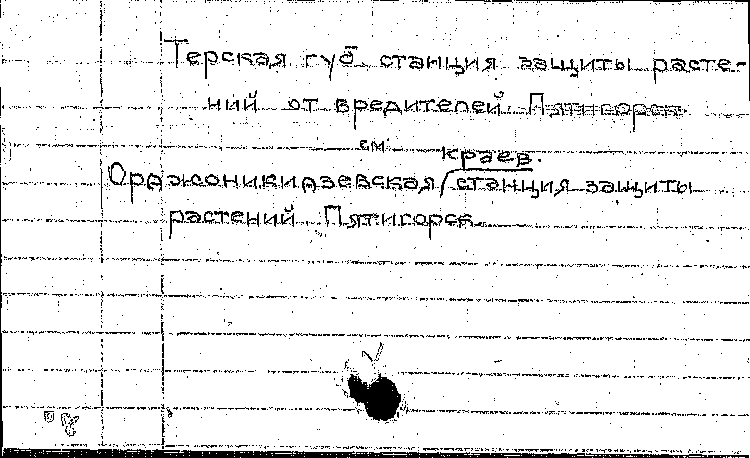 Терская губ. станция защиты расте-
ний от вредителей. Пятигорск
см.
краев.
Орджоникидзевская станция защиты
растений. Пятигорск.